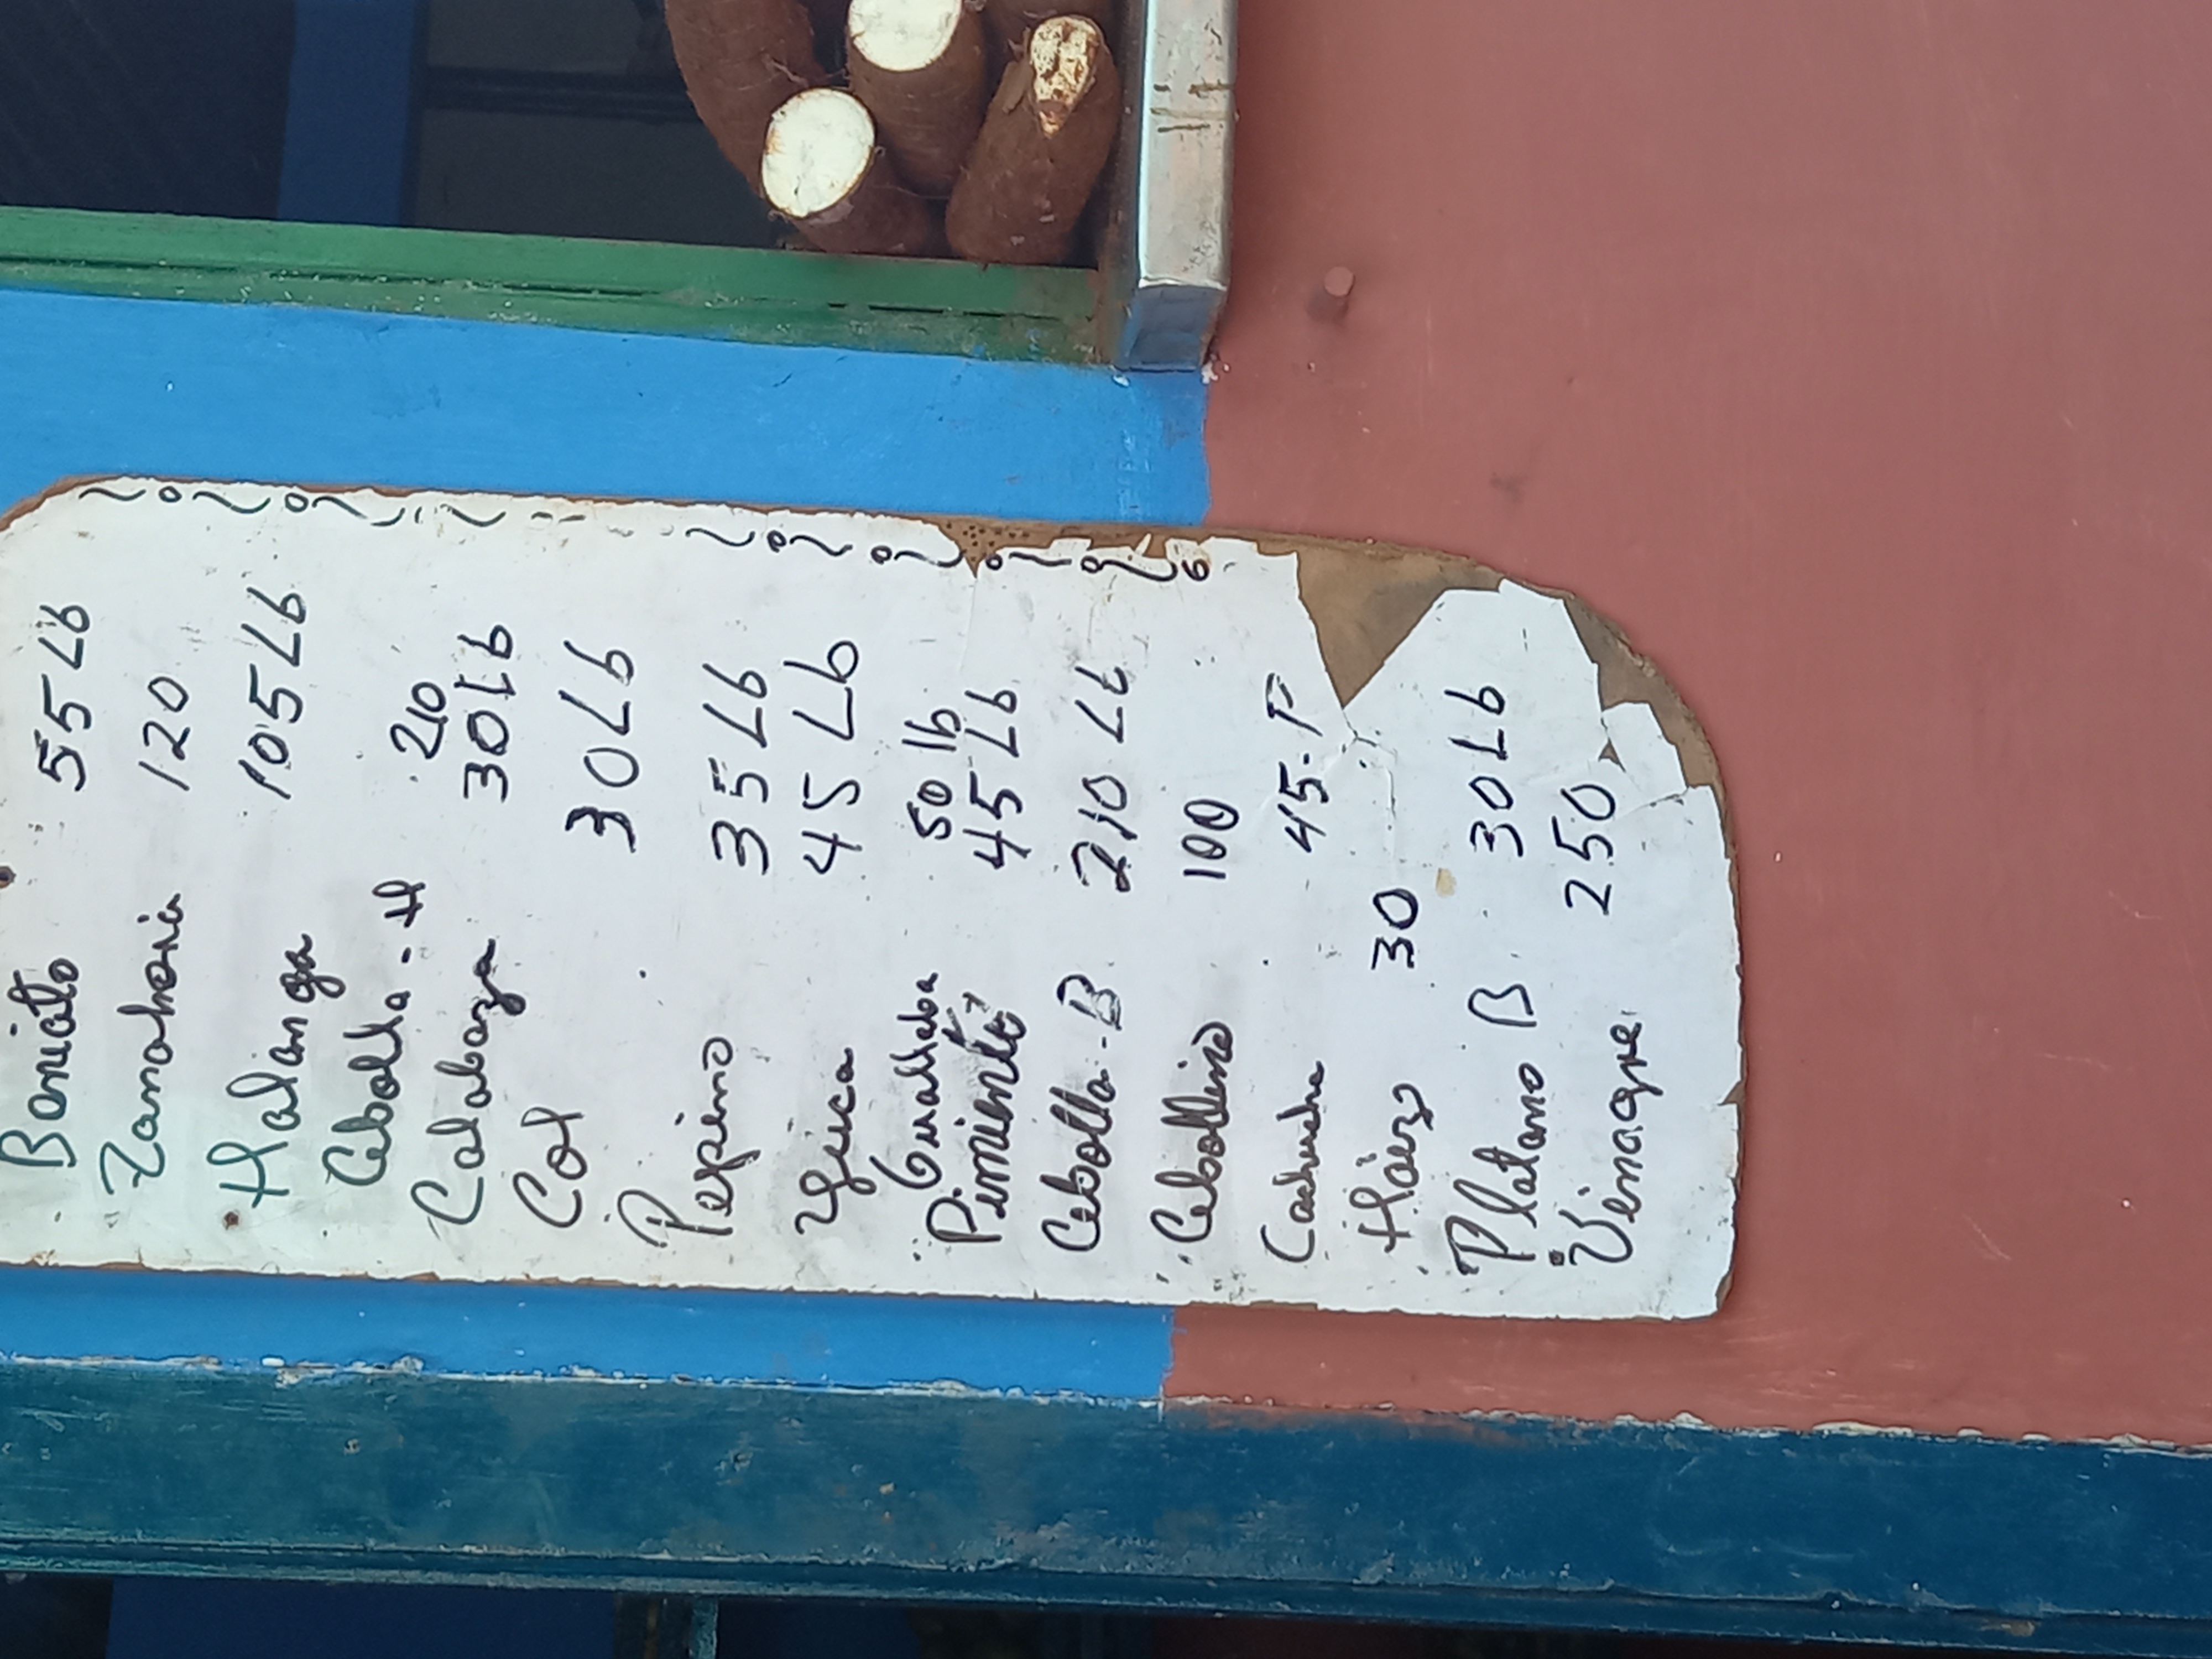 Boniato 55 Lb
Zanahoria 120
Malanga 105 Lb
Cebolla - M 210
Calabaza 30 Lb
Col 30 Lb
Pepino 35 Lb
Yuca 45 Lb
Guallaba 50 lb
Pimiento 45 Lb
Cebolla - B 210 Lb
Cebollino 100
Cachucha 45 - P
Maiz 30
Platano B. 30 Lb
Vinagre 250